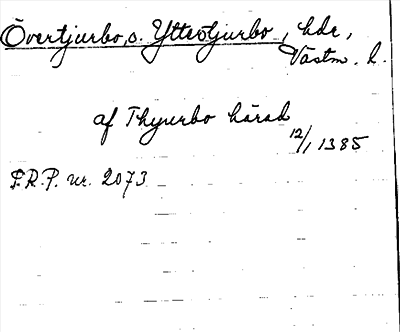 Övertjurbo, o. Yttertjurbo, hdr,
Västm. l.
af Thyurbo härad
12/1 1385
S.R.P. nr. 2073